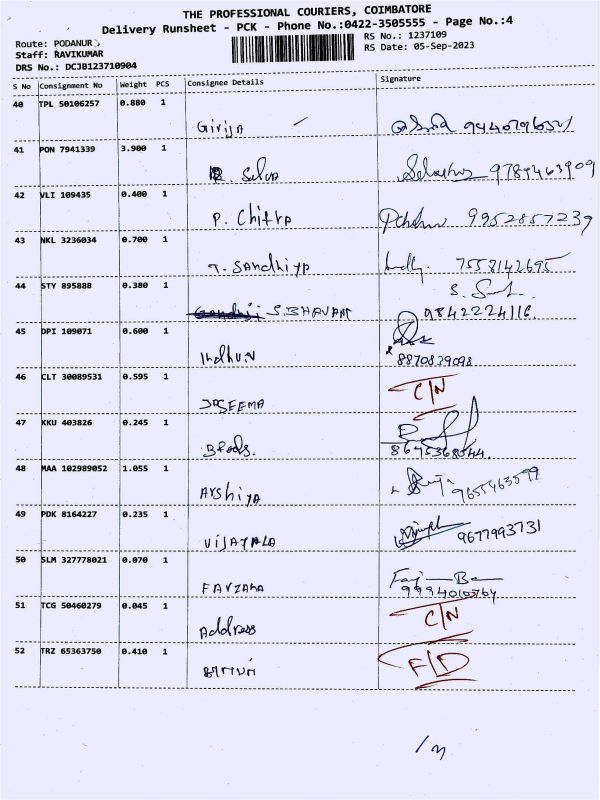 THE PROFESSIONAL COURIERS, COIMBATORE
Delivery Runsheet - PCK - Phone No.:0422-3505555 - Page No.:4
Route: PODANUR
RS No.: 1237109
Staff: RAVIKUMAR
RS Date: 05-Sep-2023
DRS No.: DCJB123710904
S No Consignment No Weight PCS Consignee Details Signature
40 TPL 50106257 0.880 1
Girija
41 PON 7941339 3.900 1
R. Selva 9789463909
42 VLI 109435 0.400 1
P. Chitra 9952857239
43 NKL 3236034 0.700 1
T. Sandhiya 7558142695
44 STY 895888 0.380 1
S. BHAVANI 9842224116
45 DPI 109071 0.600 1
Indhu.N 8870839098
46 CLT 30089531 0.595 1
C/N
JASEEMA
47 KKU 403826 0.245 1
48 MAA 102989052 1.055 1
Arshiya 9655463599
49 PDK 8164227 0.235 1
VIJAYALA 9677993731
50 SLM 327778021 0.070 1
FARZANA
51 TCG 50460279 0.045 1
C/N
Address
52 TRZ 65363750 0.410 1
F/D